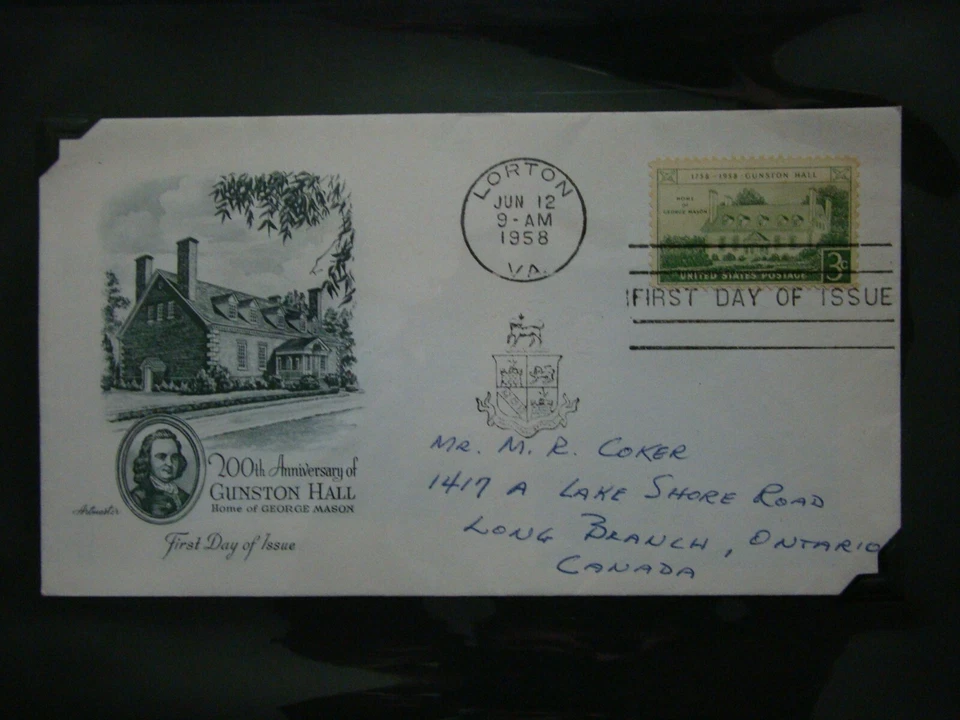 LORTON
JUN 12
9 - AM
1958
VA.
1758 - 1958 · GUNSTON HALL
HOME
OF
GEORGE MASON
UNITED STATES POSTAGE
3¢
FIRST DAY OF ISSUE
200th Anniversary of
GUNSTON HALL
Home of GEORGE MASON
Artmaster
First Day of Issue
MR. M. R. COKER
1417 A LAKE SHORE ROAD
LONG BRANCH, ONTARIO
CANADA